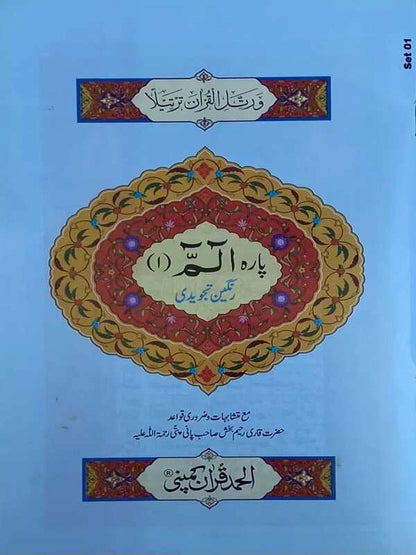 Set 01
ورتل القرآن ترتیلاً
پارہ الٓمّٓ (۱)
رنگین تجویدی
مع متشابہات و ضروری قواعد
حضرت قاری رحیم بخش صاحب پانی پتی رحمۃ اللہ علیہ
الحمد قرآن کمپنی ®